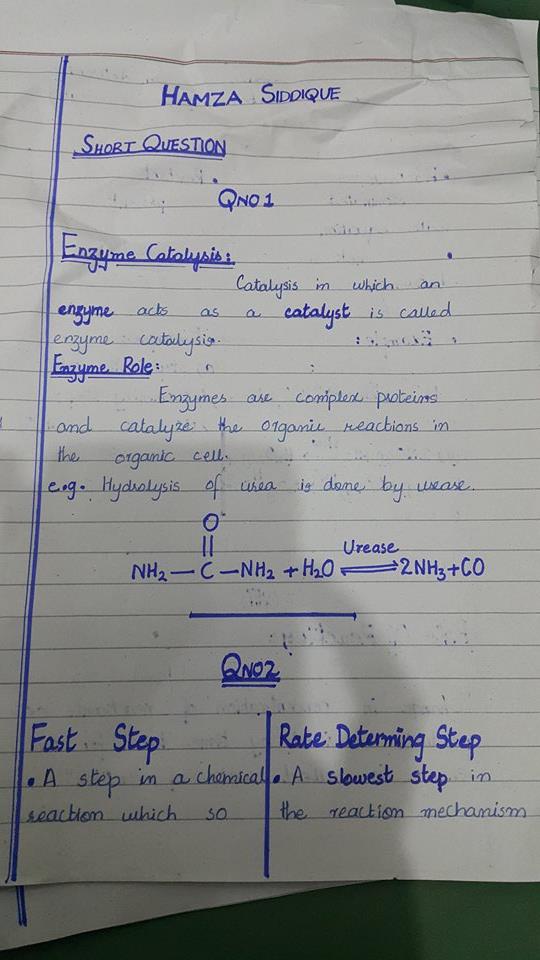 HAMZA SIDDIQUE
SHORT QUESTION
QNO1
Enzyme Catalysis:
Catalysis in which an
enzyme acts as a catalyst is called
enzyme catalysis.
Enzyme Role:
Enzymes are complex proteins
and catalyze the organic reactions in
the organic cell.
e.g. Hydrolysis of urea is done by urease.
O
||
Urease
NH₂ — C — NH₂ + H₂O ⇌ 2NH₃ + CO
QNO2
Fast Step
• A step in a chemical
reaction which so
Rate Determing Step
• A slowest step in
the reaction mechanism